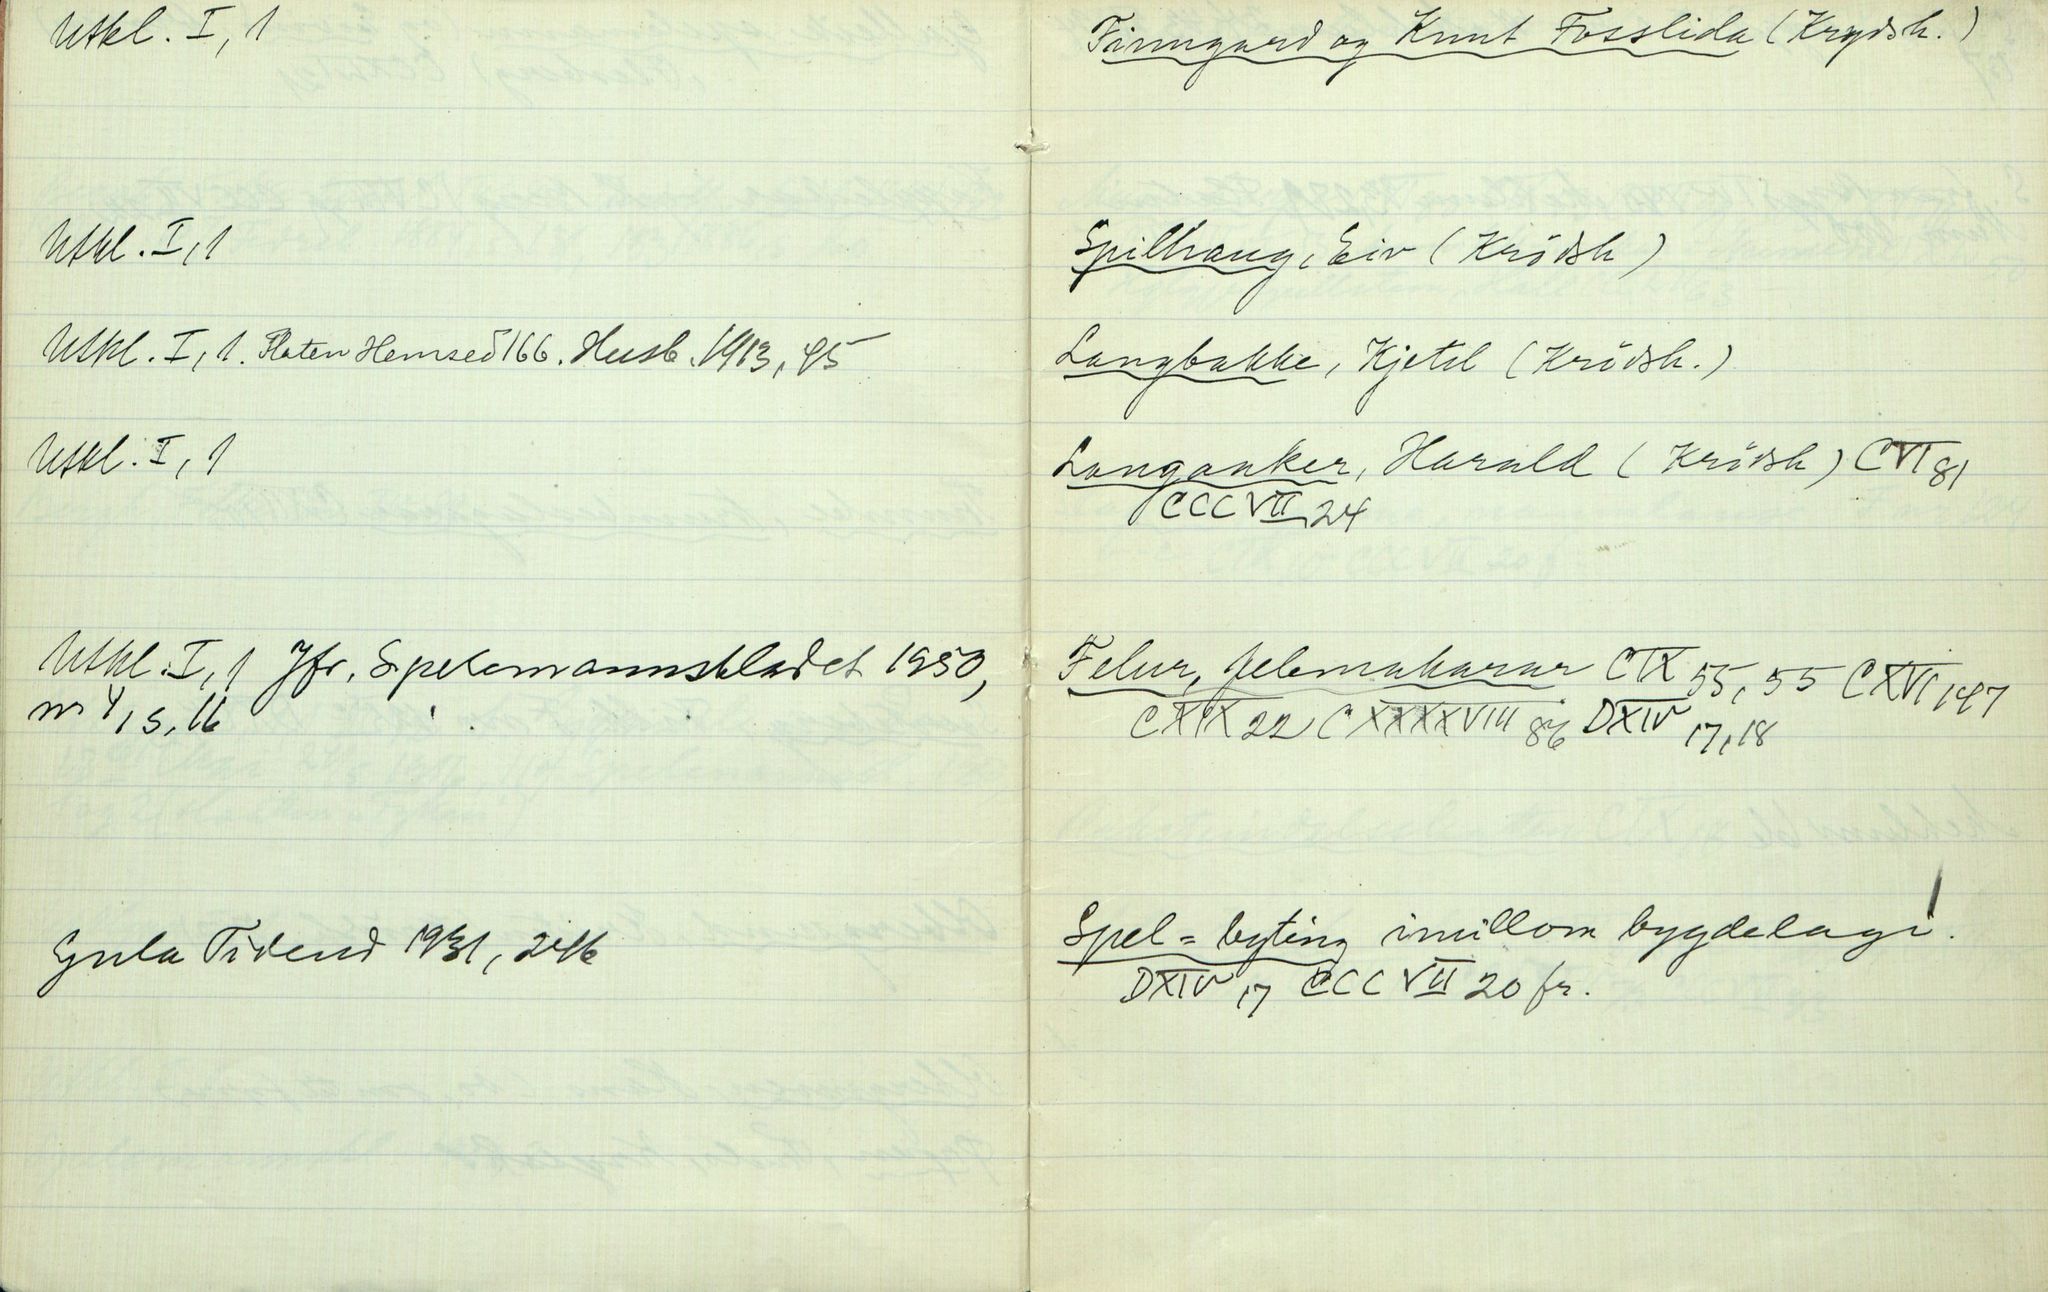 Utkl. I, 1
Utkl. I, 1
Utkl. I, 1. Flaten Hemsed 166. Husb. 1913, 45
Utkl. I, 1
Utkl. I, 1 Jfr. Spelemannsbladet 1950,
nr 4, 15, 16
Gula Tidend 1931, 246
Finngard og Knut Fosslida (Krydsh.)
Spilhaug, Eiv (Krödsh)
Langbakke, Kjetil (Krödsh.)
Langaaker, Harald (Krödsh) CVI 81
CCCVII 24
Felur, felemakarar CIX 55, 55 CXVI 147
CXIX 22 CXXXXVIII 86 DXIV 17, 18
Spel=byting imillom bygdelagi.
DXIV 17 CCCVII 20 fr.